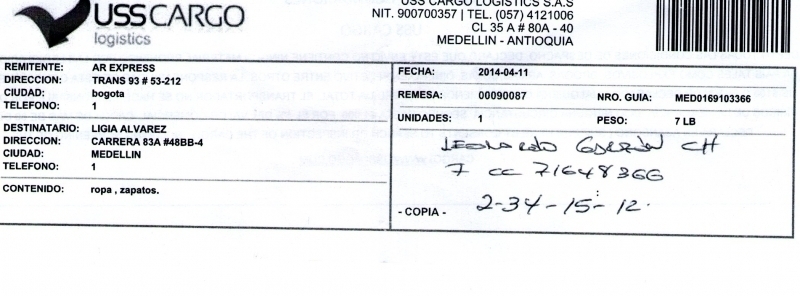 USSCARGO
logistics
USS CARGO LOGISTICS S.A.S
NIT. 900700357 | TEL. (057) 4121006
CL 35 A # 80A - 40
MEDELLIN - ANTIOQUIA
REMITENTE: AR EXPRESS
DIRECCION: TRANS 93 # 53-212
CIUDAD: bogota
TELEFONO: 1
DESTINATARIO: LIGIA ALVAREZ
DIRECCION: CARRERA 83A #48BB-4
CIUDAD: MEDELLIN
TELEFONO: 1
CONTENIDO: ropa , zapatos.
FECHA: 2014-04-11
REMESA: 00090087 NRO. GUIA: MED0169103366
UNIDADES: 1 PESO: 7 LB
CH
7 cc 71648366
2-34-15-12.
- COPIA -